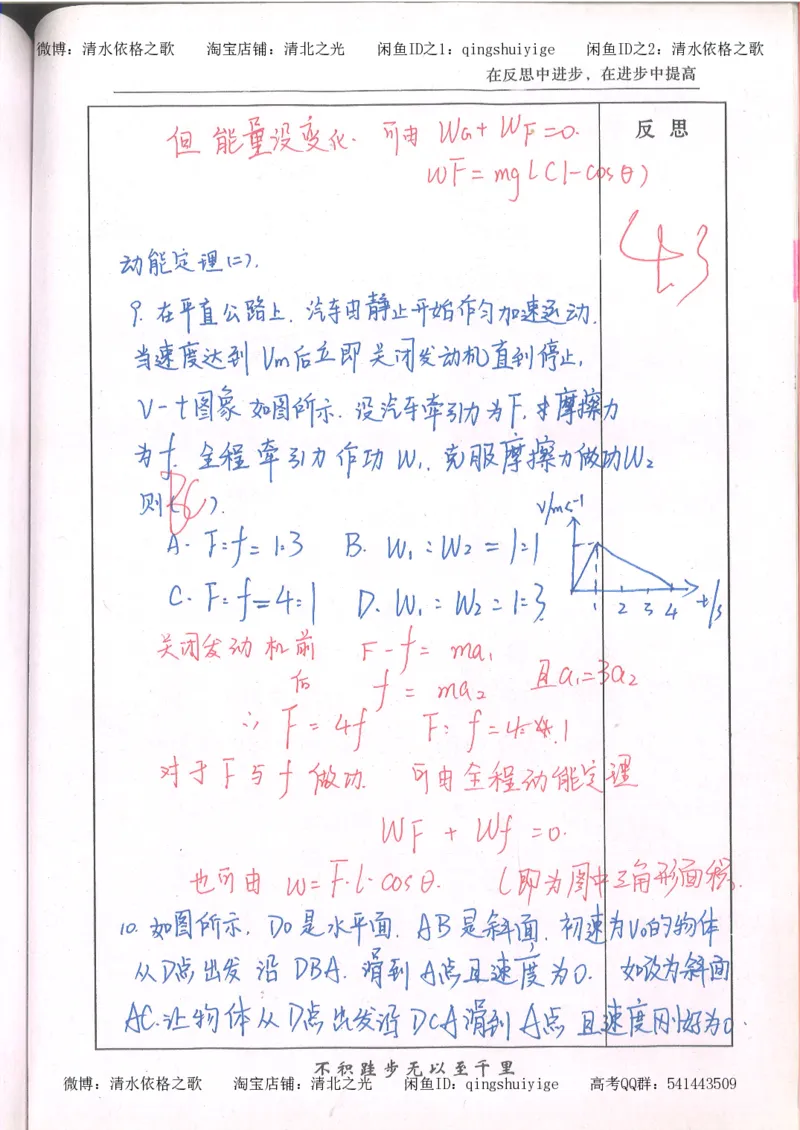 微博：清水依格之歌 淘宝店铺：清北之光 闲鱼ID之1：qingshuiyige 闲鱼ID之2：清水依格之歌
在反思中进步，在进步中提高
反 思
但 能量没变化. 可由 WG+WF=0.
WF=mgL(1-cosθ)
43
动能定理(二).
9. 在平直公路上. 汽车由静止开始作匀加速运动.
当速度达到 Vm后立即关闭发动机直到停止,
V-t图象 如图所示. 设汽车牵引力为F. 摩擦力
为f. 全程牵引力作功W₁. 克服摩擦力做功W₂
则(BC).
V/ms-1
A. F:f=1:3 B. W₁:W₂=1:1
C. F:f=4:1 D. W₁:W₂=1:3
1 2 3 4 t/s
关闭发动机前 F-f=ma₁
后 f=ma₂ 且a₁=3a₂
∴ F=4f F:f=4:1
对于F与f做功. 可由全程动能定理
WF+Wf=0.
也可由 W=F·l·cosθ. (即为图中三角形面积).
10. 如图所示. DO是水平面. AB是斜面. 初速为V₀的物体
从D点出发 沿 DBA. 滑到 A点且速度为0. 如改为斜面
AC.让物体从D点出发沿DCA滑到A点 且速度刚好为0.
不积跬步无以至千里
微博：清水依格之歌 淘宝店铺：清北之光 闲鱼ID：qingshuiyige 高考QQ群：541443509